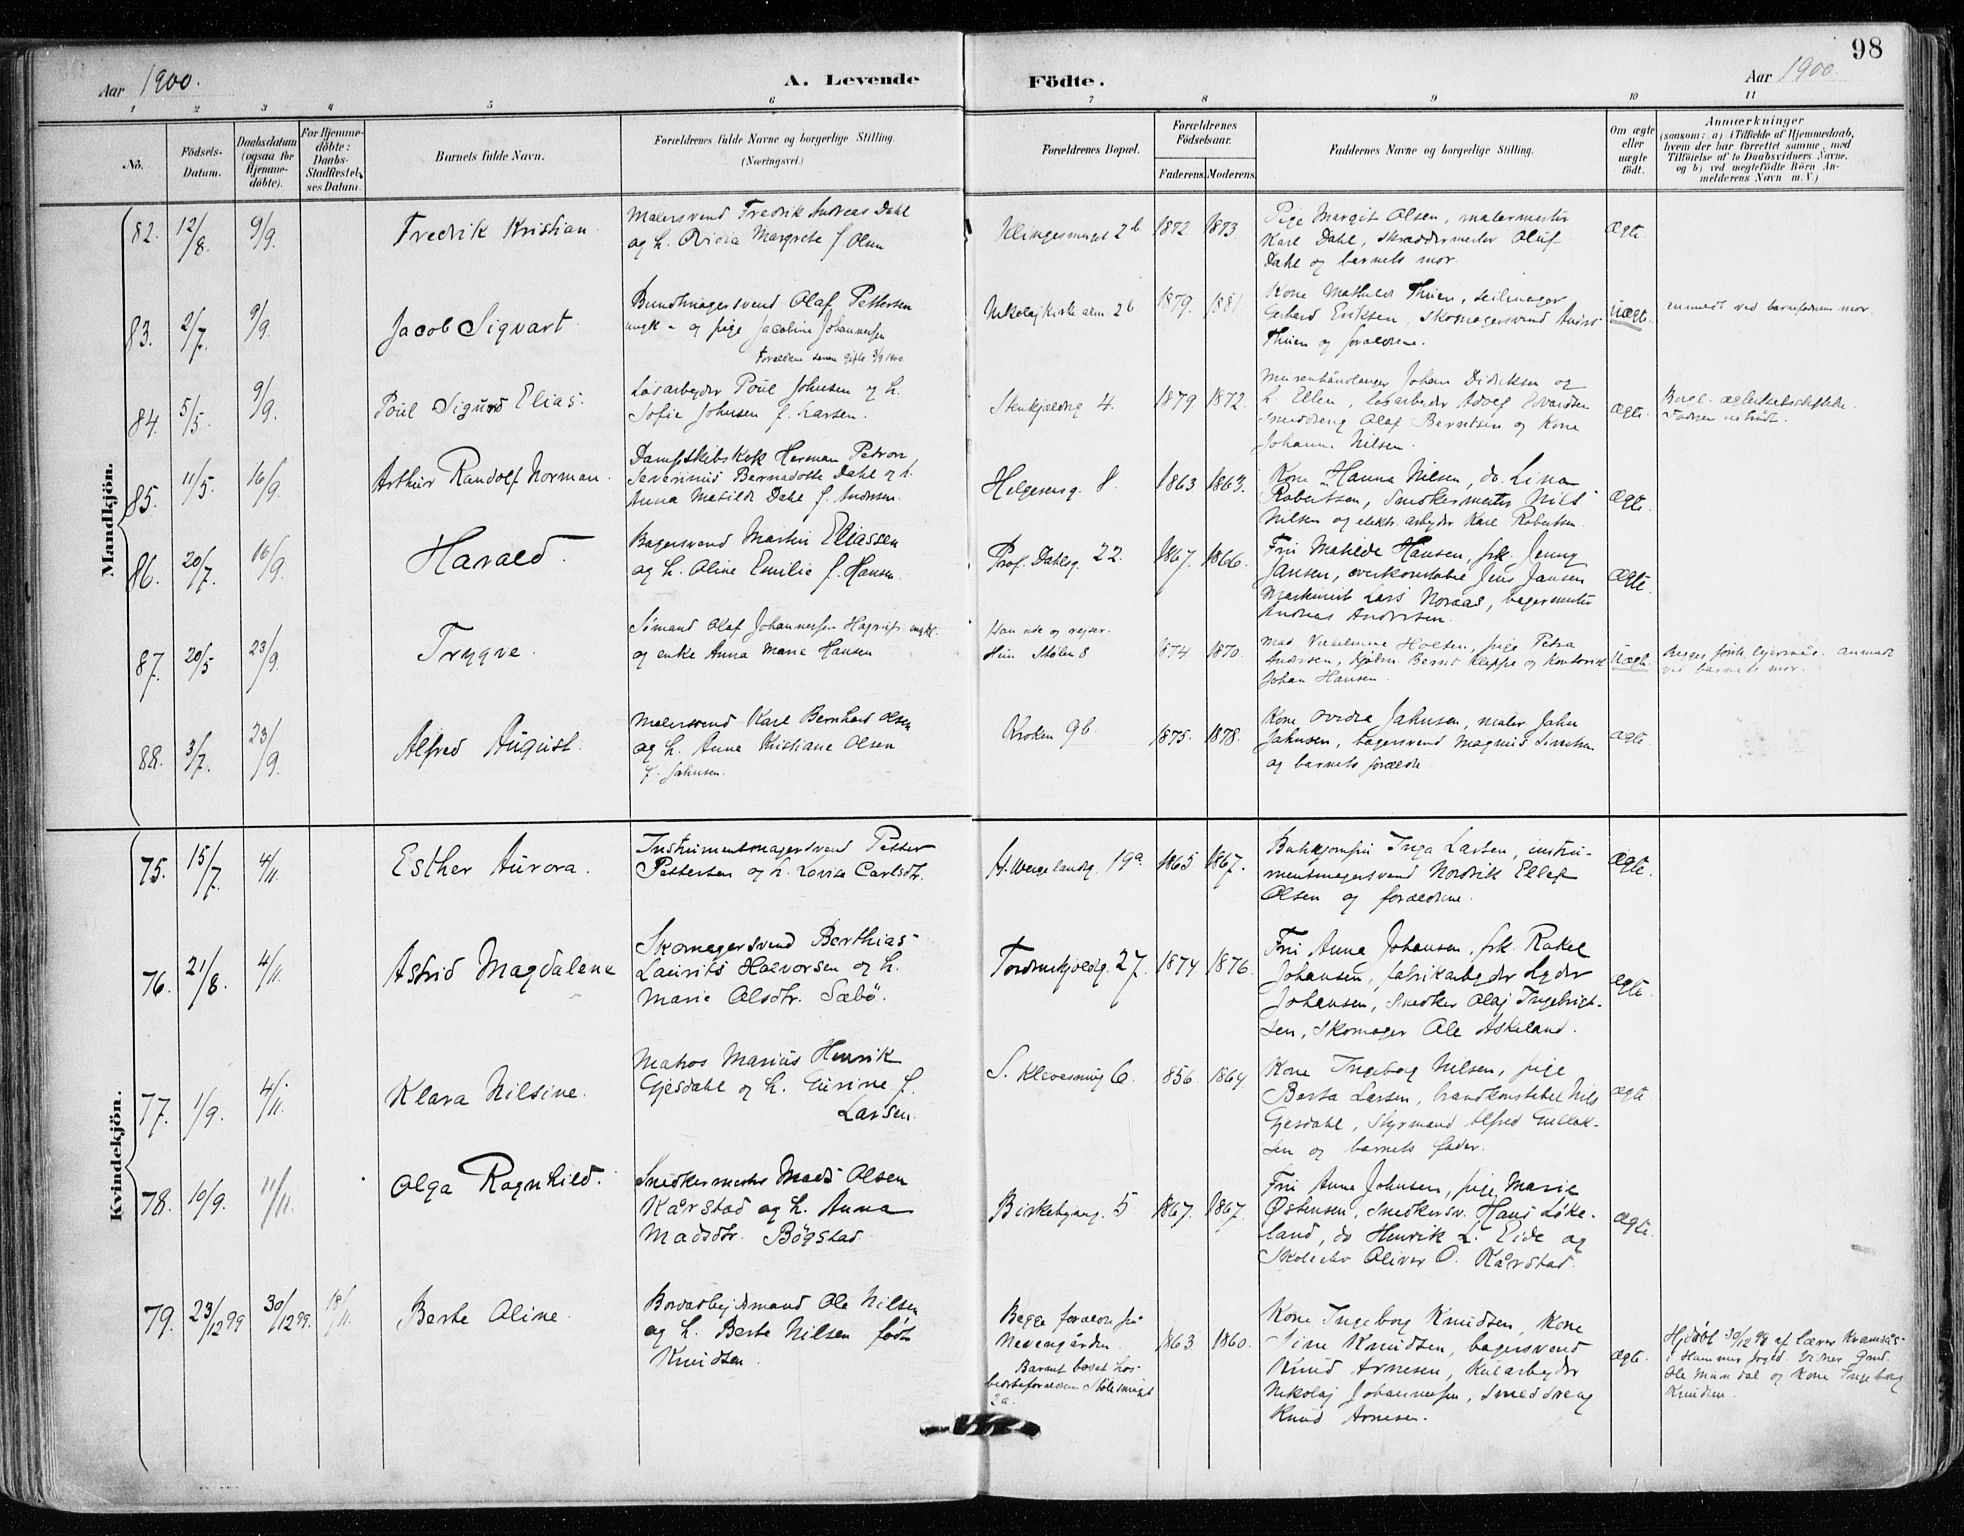 98
Aar 1900.
A. Levende Födte.
Aar 1900.
1 2 3 4 5 6 7 8 9 10 11
No.
Födsels-
Datum.
Daabsdatum
(ogsaa for
Hjemme-
döbte).
For Hjemme-
döbte:
Daabs-
Stadfæstel-
ses Datum.
Barnets fulde Navn.
Forældrenes fulde Navne og borgerlige Stilling.
(Næringsvei.)
Forældrenes Bopæl.
Forældrenes
Födselsaar.
Faderens. Moderens.
Faddernes Navne og borgerlige Stilling.
Om ægte
eller
uægte
födt.
Anmærkninger
(saasom: a) i Tilfælde af Hjemmedaab,
hvem der har forrettet samme, med
Tilföielse af to Daabsvidners Navne,
og b) ved uægtefödte Börn An-
melderens Navn m. V.)
Mandkjön.
82. 12/8. 9/9. Fredrik Kristian.
Malersvend Fredrik Andreas Dahl
og h. Ovidia Margrete f. Olsen
2b 1872 1873.
Pige Margit Olsen, malermester
Karl Dahl, skræddermester Oluf
Dahl og barnets mor.
Ægte.
83. 2/7. 9/9. Jacob Sigvart.
Bundtmagersvend Olaf Pettersen
ungk. og pige Jacobine Johannessen
Forældrene senere gifte
Nikolajkirkealm 2b 1879. 1881.
Kone Mathilde Thuen, seilmager
Gerhard Eriksen, Skomagersvend
Thuen og forældrene.
Uægte.
anmeldt ved barnefaderens mor.
84. 5/5. 9/9. Poul Sigurd Elias.
Løsarbejder Poul Johnsen og h.
Sofie Johnsen f. Larsen.
4. 1879 1872.
Johan Didriksen og
h. Ellen, løsarbejder Adolf Edvardsen
smeddreng Olaf Berntsen og Kone
Johanne Nilsen.
Ægte.
85. 11/5. 16/9. Arthur Randolf Norman.
Dampskibskok Herman Petron
Severinus Bernadotte Dahl og h.
Anna Matilde Dahl f. Andersen.
Helgesensg. 8. 1863 1863.
Kone Hanna Nilsen, do. Lina
Robertsen, Snedkermester Nils
Nilsen og elektr. arbejder Karl Robertsen.
Ægte.
86. 20/7. 16/9. Harald.
Bagersvend Martin Eliassen
og h. Oline Emilie f. Hansen.
Prof. Dahlsg. 22. 1867. 1866.
Fru Matilde Hansen, frk. Jenny
Jansen, overkonstabel Jens Jansen
Maskinist Lars Noraas, bagermester
Andreas Andersen.
Ægte.
87. 20/5. 23/9. Trygve.
Sømand Olaf Johannessen ungk.
og enke Anna Marie Hansen
Han ude og rejser.
Hun Stølen 8 1874 1870.
Mad. Vilhelmine Holsen, pige Petra
Andersen, Bernt Kleppe og Kontorist
Johan Hansen.
Uægte.
Begges første lejermål. anmeldt
ved barnets mor.
88. 3/7. 23/9. Alfred August.
Malersvend Karl Bernhard Olsen
og h. Anna Kristiane Olsen
f. Jahnsen.
Kroken 9b. 1875. 1878.
Kone Ovidia Jahnsen, maler Jahn
Jahnsen, bagersvend Magnus Sivertsen
og barnets forældre
Ægte.
Kvindekjön.
75. 15/7. 4/11. Esther Aurora.
Instrumentmagersvend Petter
Pettersen og h. Lovise Carlsdtr.
H. Wergelandsg. 19a 1865 1867.
Inga Larsen, instru-
mentmagersvend Nordvik Ellef
Olsen og forældrene.
Ægte.
76. 21/8. 4/11. Astrid Magdalene
Skomagersvend Berthias
Laurits Halvorsen og h.
Marie Olsdtr. Sæbö.
Tordenskjoldsg. 27. 1874 1876.
Fru Anna Johansen, frk. Rakel
Johansen, fabrikarbejder Lyder
Johansen, Snedker Olaf Ingebrigt-
sen, Skomager Ole Askeland.
Ægte.
77. 1/9. 4/11. Klara Nilsine.
Matros Marius Henrik
Gjesdahl og h. Gurine f.
Larsen.
S. Klevesmug 6. 1856 1864.
Kone Ingeborg Nilsen, pige
Berta Larsen, brandkonstabel Nils
Gjesdahl, Styrmand Alfred Gullak-
sen og barnets fader.
Ægte
78. 10/9. 11/11. Olga Ragnhild.
Snedkermester Mads Olsen
Kårstad og h. Anna
Madsdtr. Bögstad
Birkebejnerg. 5 1867. 1867.
Fru Anna Johnsen, pige Marie
Østensen, Snedkersv. Hans Løke-
land, do Henrik L. Eide og
Skoleelev Oliver O. Kårstad.
Ægte.
79. 23/12 99 30/12 99. 18/11. Berte Oline.
Bordarbejdsmand Ole Nilsen
og h. Berte Nilsen født
Knudsen.
Begge forældre på
Nevengården.
Barnet bosat hos
bedsteforældrene Stølesmuget
2a.
1863 1860.
Kone Ingeborg Knudsen, Kone
Sine Knudsen, bagersvend
Knud Arnesen, Kularbejder
Nikolaj Johannessen, smeddreng
Knud Arnesen.
Ægte.
Hjdøbt 30/12 99 af lærer
i Hammer
og Kone Ingeborg
Knudsen.